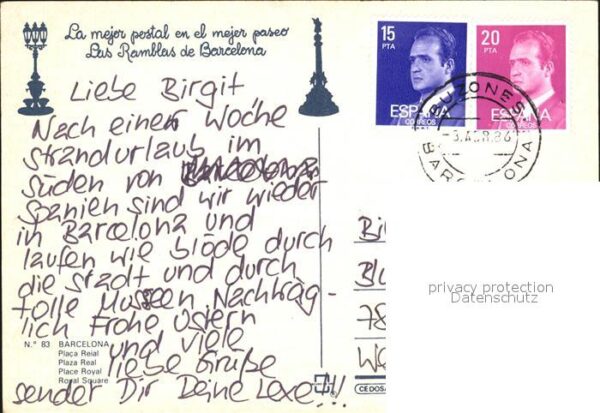 La mejor postal en el mejor paseo
Las Ramblas de Barcelona
15
PTA
ESPAÑA
CORREOS
20
PTA
ESPAÑA
CORREOS
BUZONES
-3.ABR.86
BARCELONA
Liebe Birgit
Nach einer Woche
strandurlaub im
süden von
spanien sind wir wieder
in Barcelona und
laufen wie blöde durch
die stadt und durch
tolle Museen Nachträg-
lich Frohe Ostern
und viele
liebe Grüße
sender Dir Deine
N.º 83 BARCELONA
Plaça Reial
Plaza Real
Place Royal
Royal Square
78
privacy protection
Datenschutz